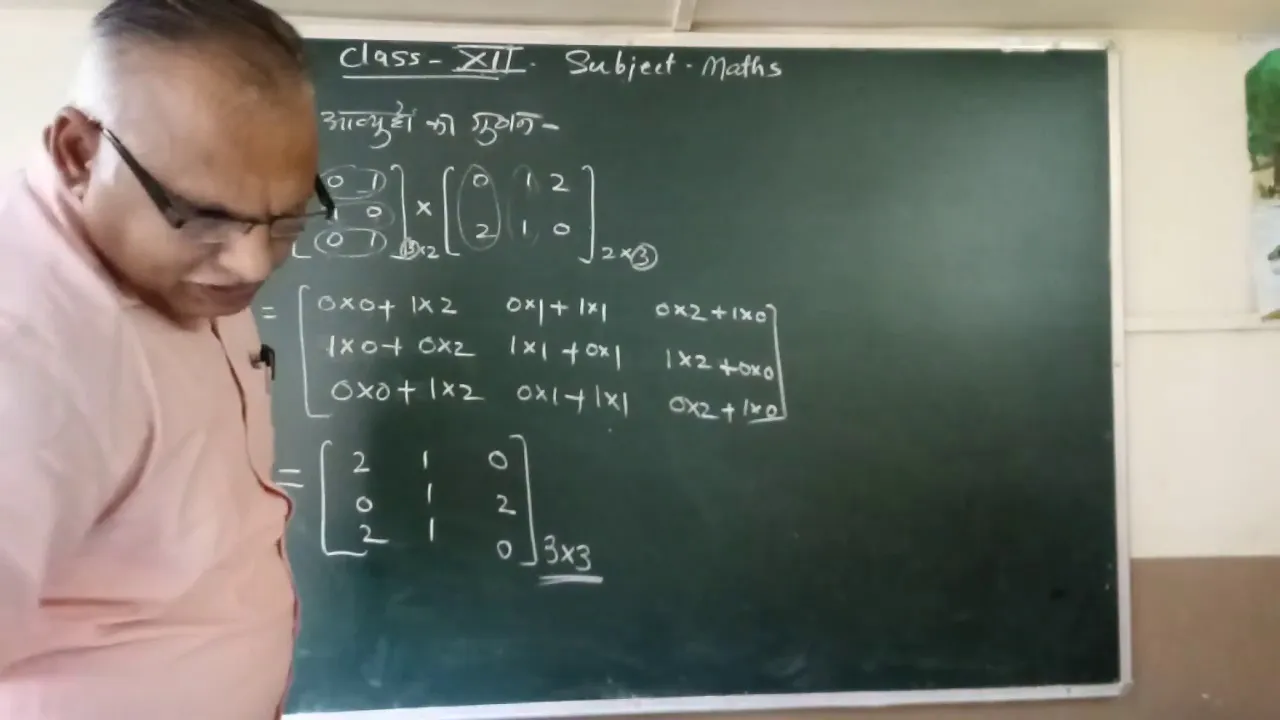 Class - XII. Subject - Maths
आव्यूहों का गुणन -
[0 1] × [0 1 2]
[1 0] [2 1 0]
[0 1] 3×2 2×3
= [0×0+1×2 0×1+1×1 0×2+1×0]
[1×0+0×2 1×1+0×1 1×2+0×0]
[0×0+1×2 0×1+1×1 0×2+1×0]
= [2 1 0]
[0 1 2]
[2 1 0] 3×3